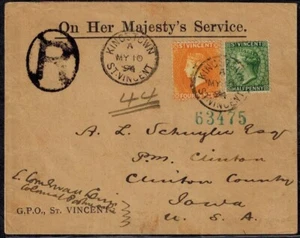 On Her Majesty's Service.
R
KINGSTOWN
A
MY 10
94
ST. VINCENT
ST VINCENT
HALFPENNY
KINGSTOWN
A
ST. VINCENT
44
63475
A. L. Schuyler Esq
P.M. Clinton
Clinton County
Iowa
U. S. A.
Colonial
G.P.O., ST. VINCENT